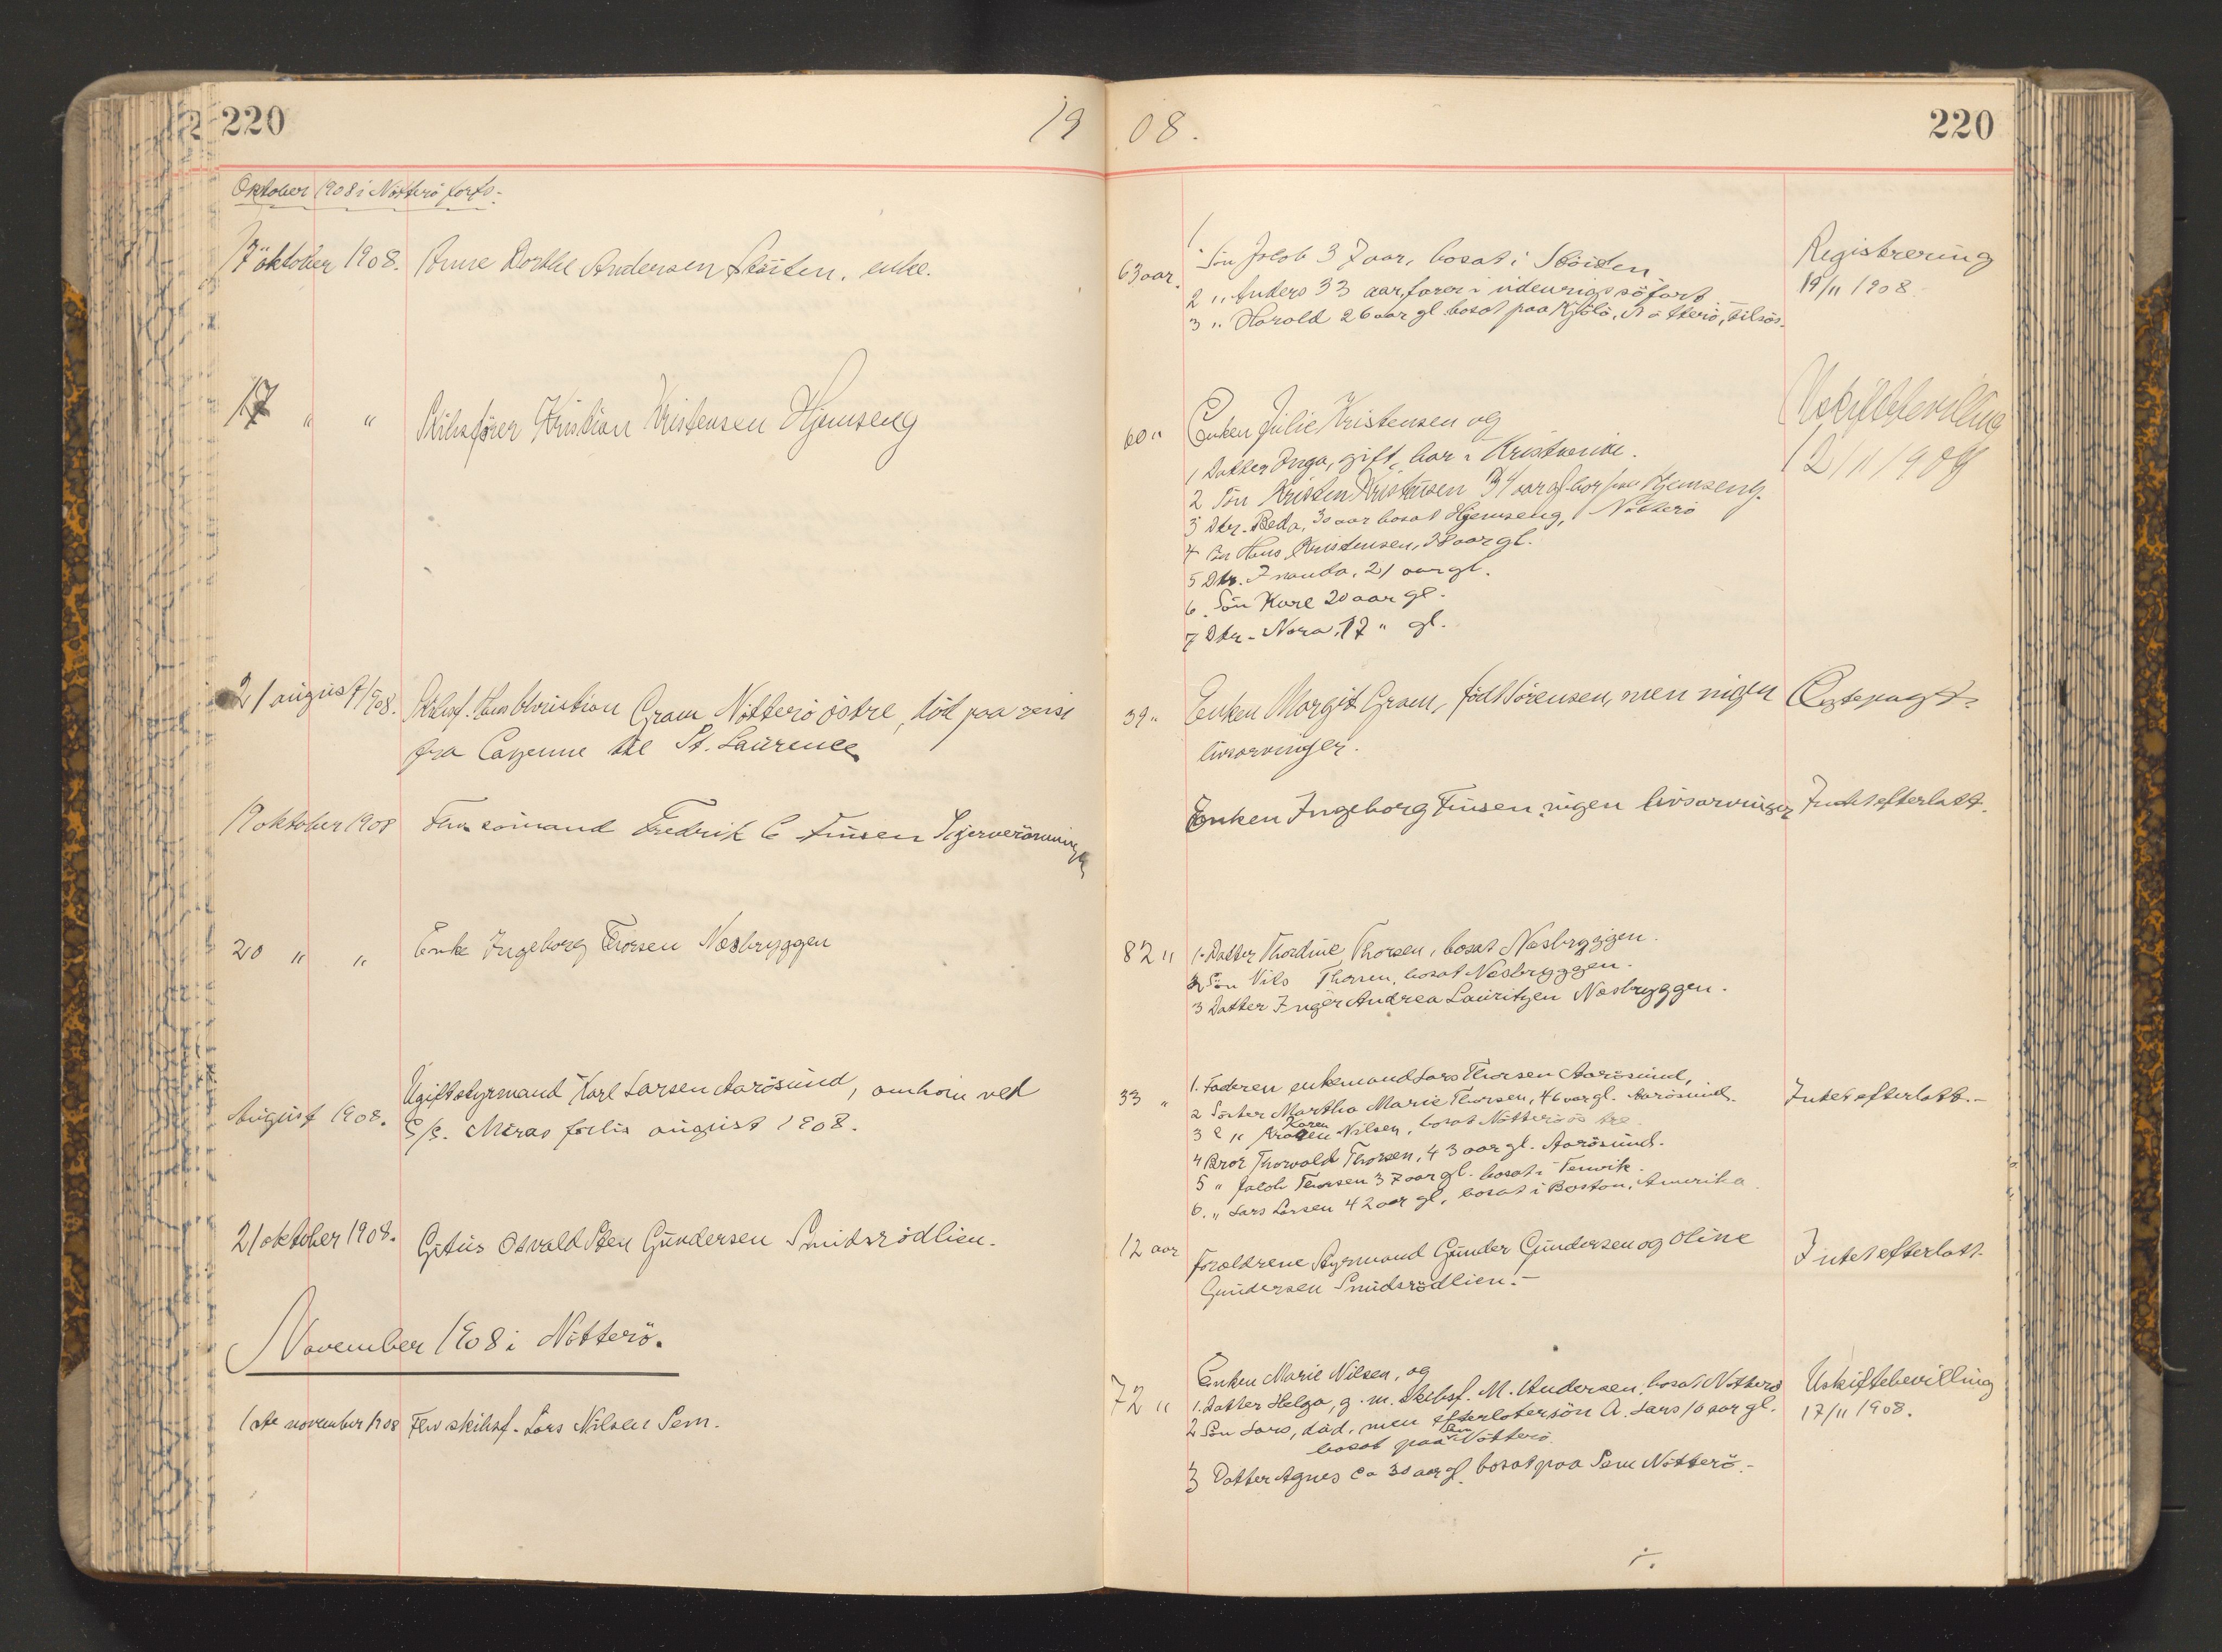 220
19
08.
220
Oktober 1908 i Nötterö forts.
17 oktober 1908. Anne Dorthe Andersen Stöiten, enke.
63 aar.
1. Sön Jacob 37 aar, bosat i Stöiten
2 " Anders 33 aar, farer i udenrigs söfart
3 " Harald 26 aar gl. bosat paa Kjölö, Nötterö, tilsös.
Registrering
19/11 1908.
17 " " Skibsförer Kristian Kristensen Hjemseng
60 "
Enken Julie Kristensen og
1 Datter Inga, gift, bor i Kristiania.
2 Sön Kristen Kristensen 34 aar gl. bor paa Hjemseng.
3 Dtr. Beda, 30 aar bosat Hjemseng, Nötterö
4 Sön Hans Kristensen, 28 aar gl.
5 Dtr. Inanda, 21 aar gl.
6. Sön Karl 20 aar gl.
7 Dtr. Nora, 17 " gl.
Uskiftebevilling
12/11 1908
21 august 1908. Skibsf. Hans Christian Gram Nötterö östre, död paa reise
fra Cayenne til St. Laurence
39 "
Enken Margit Gram, född Sörensen, men ingen
livsarvinger.
Ægtepagt.
19 oktober 1908 Fhv. sömand Fredrik C Finsen Skjerveröningen
Enken Ingeborg Finsen, ingen livsarvinger
Intet efterlatt.
20 " " Enke Ingeborg Thorsen Nesbryggen
82 "
1. Datter Thordine Thorsen, bosat Nesbryggen.
2 Sön Nils Thorsen, bosat Nesbryggen.
3 Datter Inger Andrea Lauritzen Nesbryggen.
August 1908.
Ugift styrmand Karl Larsen Aarösund, omkom ved
S/S. Meras forlis august 1908.
33 "
1. Faderen enkemand Lars Thorsen Aarösund,
2 Söster Martha Marie Thorsen, 46 aar gl. Aarösund.
3 " Karen Nilsen, bosat Nötterö östre.
4 Bror Thorvald Thorsen, 43 aar gl. Aarösund.
5 " Jacob Thorsen 37 aar gl. bosat i Tenvik.
6. " Lars Larsen 42 aar gl, bosat i Boston, Amerika.
Intet efterlatt.-
21 oktober 1908. Gitüs Osvald Sten Gundersen Smidsrödlien.
12 aar
Forældrene Styrmand Gunder Gundersen og Oline
Gundersen Smidsrödlien.-
Intet efterlatt.
November 1908 i Nötterö.
1ste november 1908 Fhv skibsf. Lars Nilsen Sem.
72 "
Enken Marie Nilsen, og
1. Datter Helga, g. m. skibsf. M. Andersen, bosat Nötterö
2 Sön Lars, död, men efterlater sön A. Lars 10 aar gl.
bosat paa Sem Nötterö.
3 Datter Agnes ca 30 aar gl. bosat paa Sem Nötterö.-
Uskiftebevilling
17/11 1908.